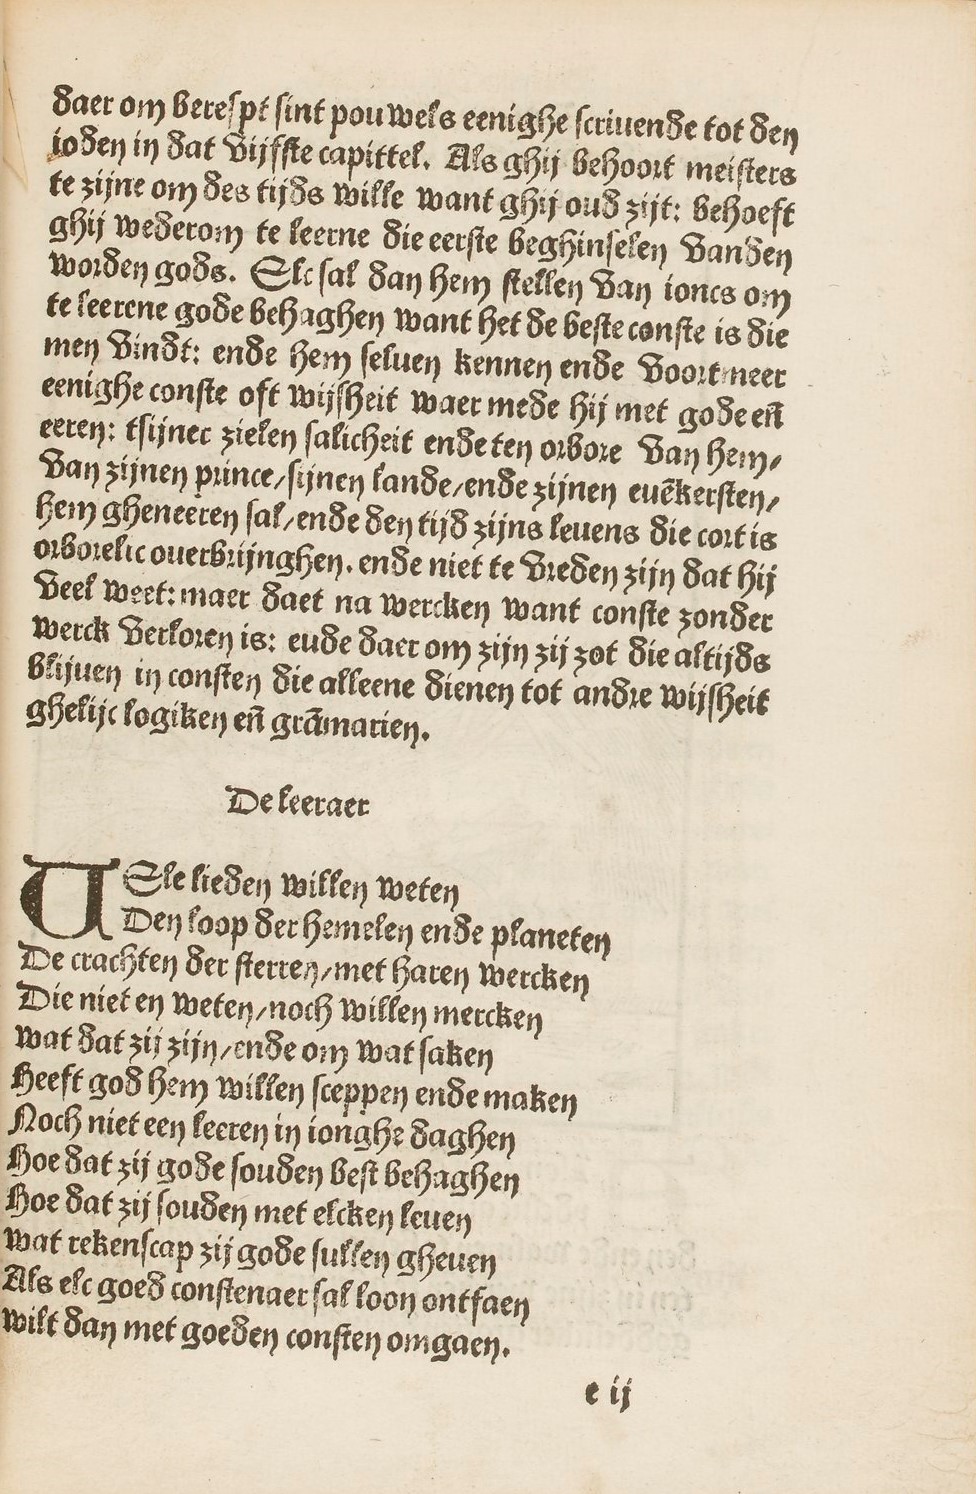 daer om berespt sint pouwels eenighe scriuende tot den
ioden in dat vijfste capittel. Als ghij behoort meisters
te zijne om des tijds wille want ghij oud zijt: behoeft
ghij wederom te leerne die eerste beghinselen vanden
worden gods. Elc sal dan hem stellen van ioncs om
te leerene gode behaghen want het de beste conste is die
men vindt: ende hem seluen kennen ende voortmeer
eenighe conste oft wijsheit waer mede hij met gode en̄
eeren: tsijner zielen salicheit ende ten orbore van hem/
van zijnen prince/sijnen lande/ende zijnen euēkersten/
hem gheneeren sal/ende den tijd zijns leuens die cort is
orborelic ouerbrijnghen. ende niet te vreden zijn dat hij
veel weet: maer daer na wercken want conste zonder
werck verloren is: eude daer om zijn zij zot die altijds
blijuen in consten die alleene dienen tot andre wijsheit
ghelijc logiken en̄ grāmarien.
De leeraer
VEle lieden willen weten
Den loop der hemelen ende planeten
De crachten der sterren/met haren wercken
Die niet en weten/noch willen mercken
wat dat zij zijn/ende om wat saken
Heeft god hem willen sceppen ende maken
Noch niet een leeren in ionghe daghen
Hoe dat zij gode souden best behaghen
Hoe dat zij souden met elcken leuen
wat rekenscap zij gode sullen gheuen
Als elc goed constenaer sal loon ontfaen
wilt dan met goeden consten omgaen.
e ij